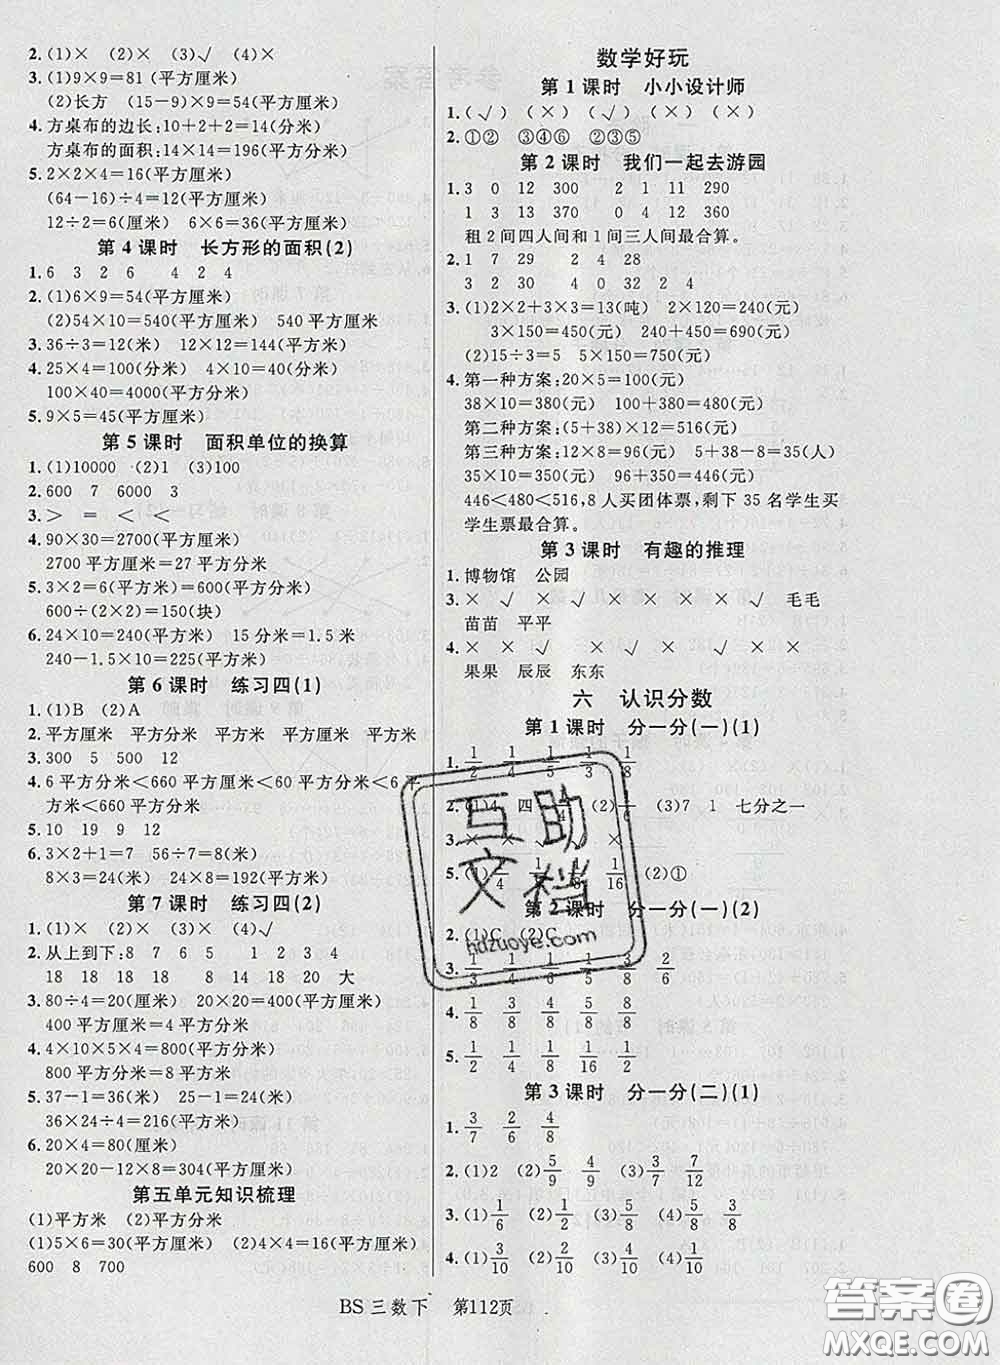 2.(1)× (2)× (3)√ (4)×
3.(1)9×9=81(平方厘米)
(2)长方 (15-9)×9=54(平方厘米)
4.方桌布的边长:10+2+2=14(分米)
方桌布的面积:14×14=196(平方分米)
5.2×2×4=16(平方厘米)
(64-16)÷4=12(平方厘米)
12÷2=6(厘米) 6×6=36(平方厘米)
第4课时 长方形的面积(2)
1.6 3 2 6 4 2 4
2.(1)6×9=54(平方厘米)
(2)54×10=540(平方厘米) 540平方厘米
3.36÷3=12(厘米) 12×12=144(平方厘米)
4.25×4=100(分米) 4×10=40(分米)
100×40=4000(平方分米)
5.9×5=45(平方厘米)
第5课时 面积单位的换算
1.(1)10000 (2)1 (3)100
2.600 7 6000 3
3.> = < <
4.90×30=2700(平方厘米)
2700平方厘米=27平方分米
5.3×2=6(平方米)=600(平方分米)
600÷(2×2)=150(块)
6.24×10=240(平方米) 15分米=1.5米
240-1.5×10=225(平方米)
第6课时 练习四(1)
1.(1)B (2)A
2.平方厘米 平方分米 平方米 平方米 平方厘米
3.300 5 500 12
4.6平方分米<660平方厘米<60平方分米<6平
方米<660平方分米
5.10 19 9 12
6.3×2+1=7 56÷7=8(米)
8×3=24(米) 24×8=192(平方米)
第7课时 练习四(2)
1.(1)× (2)× (3)× (4)√
2.从上到下:8 7 6 5 3 2 1
18 18 18 18 18 20 大
3.80÷4=20(厘米) 20×20=400(平方厘米)
400平方厘米=4平方分米
4.4×10×5×4=800(平方分米)
800平方分米=8平方米
5.37-1=36(米) 25-1=24(米)
36×24÷4=216(平方米)
6.20×4=80(厘米)
20×20-12×8=304(平方厘米)
第五单元知识梳理
(1)平方米 (2)平方分米
(1)5×6=30(平方厘米) (2)4×4=16(平方厘米)
600 8 700
数学好玩
第1课时 小小设计师
1.(√) (√) (×) (×) (×)
2.①② ③④⑥ ②③⑤
第2课时 我们一起去游园
1.3 0 12 300 2 1 11 290
1 3 13 370 0 4 12 360
租2间四人间和1间三人间最合算。
2.1 7 29 2 4 28
3 2 30 4 0 32 2 4
3.(1)2×2+3×3=13(吨) 2×120=240(元)
3×150=450(元) 240+450=690(元)
(2)15÷3=5 5×150=750(元)
4.第一种方案:20×5=100(元)
38×10=380(元) 100+380=480(元)
第二种方案:(5+38)×12=516(元)
第三种方案:12×8=96(元) 5+38-8=35(人)
35×10=350(元) 96+350=446(元)
446<480<516,8人买团体票,剩下35名学生买
学生票最合算。
第3课时 有趣的推理
1.博物馆 公园
3.× √ × √ × × × × √ 毛毛
苗苗 平平
4.× × √ × √ × √ × ×
果果 辰辰 东东
六 认识分数
第1课时 分一分(一)(1)
1.1/2 1/4 1/5 1/3 1/8
2.(1)4 四 (3)7 1 七分之一
3.× × √ √ ×
1/16 (2)①
第2课时 分一分(一)(2)
2.(1)C (2)C
3.1/3 1/4 1/6 1/8 3/8 2/6
4.1/8 3/8 4/8 5/8 5/8
5.1/2 1/4 1/8 1/16 1/2
第3课时 分一分(二)(1)
1.3/7 2/6 4/8
2.(1)2 (2)5/9 4/9 (3)4 5/12 7/12
3.(1)1/6 (2)1/2 (3)1/6 (4)2/9
4.(1)3/10 (2)1/10 (3)5/10 (4)1/10
BS三数下 第112页
互助
文档
hdzuoye.com
答案圈
MXQE.COM